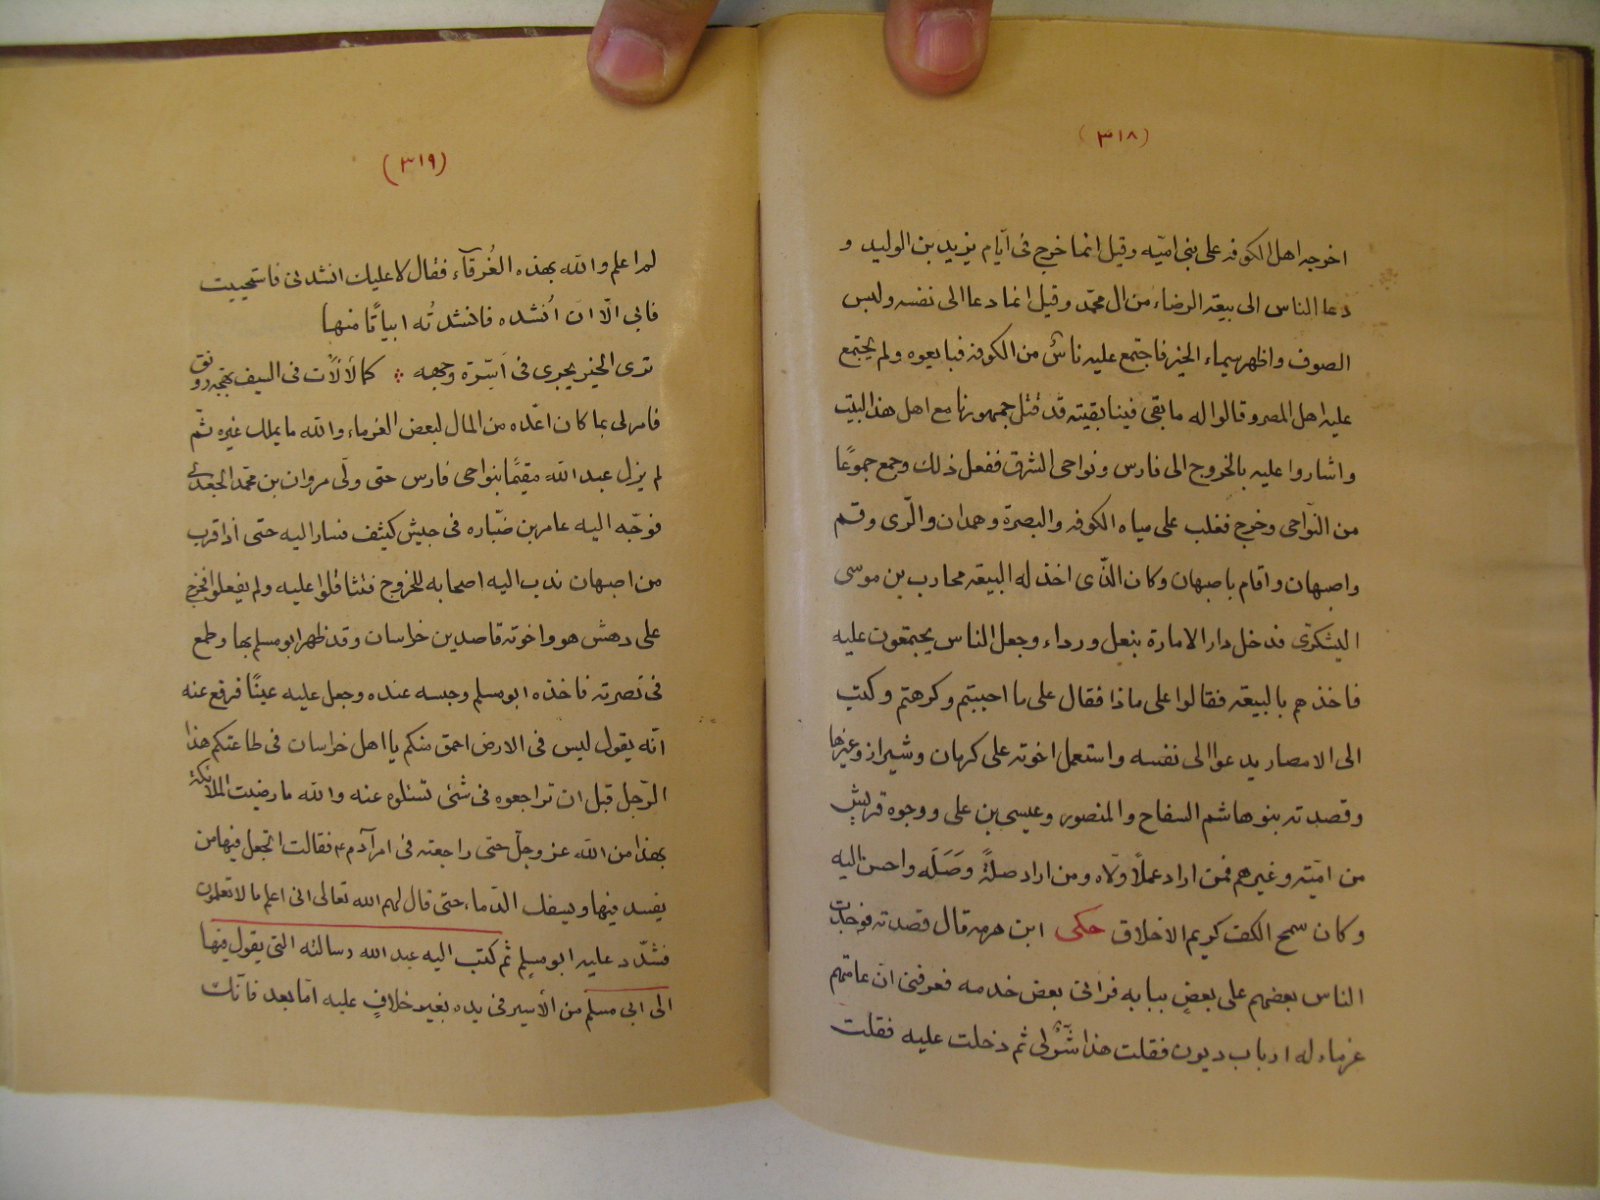 (٣١٨)
اخرجه اهل الكوفه على بنى اميّه وقيل انما خرج فى ايّام يزيد بن الوليد و
دعا الناس الى بيعة الرضاء من ال محمّد وقيل انما دعا الى نفسه ولبس
الصوف واظهر سيماء الخير فاجتمع عليه ناسٌ من الكوفه فبايعوه ولم يجتمع
عليه اهل المصر وقالوا له ما بقى فينا بقيته قد قتل جمهورنا مع اهل هذا البيت
واشاروا عليه بالخروج الى فارس ونواحى الشرق ففعل ذلك وجمع جموعًا
من النّواحى وخرج فغلب على مياه الكوفه والبصرة وهمدان والرّى وقم
واصبهان واقام باصبهان وكان الذّى اخذ له البيعه محارب بن موسى
اليشكرّى فدخل دار الامارة بنعل ورداء وجعل الناس يجتمعون عليه
فاخذهم بالبيعه فقالوا على ماذا فقال على ما احببتم وكرهتم وكتب
الى الامصار يدعوا الى نفسه واستعمل اخوته على كرمان وشيراز وغيرها
وقصدته بنو هاشم السفاح والمنصور وعيسى بن على ووجوه قريش
من اميّه وغيرهم فمن اراد عملاً ولّاه ومن اراد صلةً وَصَلَه واحسن اليه
وكان سمح الكف كريم الاخلاق حكى ابن هرمه قال قصدته فوجدت
الناس بعضهم على بعضٍ ببابه فرانى بعض خدمه فعرفنى انّ عامتهم
غرماء له ارباب ديون فقلت هذا شَرٌّ لى ثم دخلت عليه فقلت
(٣١٩)
لم اعلم والله بهذه الغُرقآء فقال لا عليك انشدنى فاستحييت
فابى الّا ان اُنشده فانشدتُه ابياتًا منها
ترى الخير يجرى فى اَسِرّة وجهه كما لألأت فى السيف رونق
فامر لى بما كان اعّده من المال لبعض الغرماء والله ما يملك غيره ثم
لم يزل عبد الله مقيمًا بنواحى فارس حتى ولّى مروان بن محمّد الجعدى
فوجّه اليه عامر بن ضبّاره فى جيش كثيف فسار اليه حتى اذا قرب
من اصبهان ندب اليه اصحابه للخروج فتثاقلوا عليه ولم يفعلوا فخرج
على دهش هو واخوته قاصدين خراسان وقد ظهر ابو مسلم بها وطمع
فى نصرته فاخذه ابو مسلم وحبسه عنده وجعل عليه عينًا فرفع عنه
انّه يقول ليس فى الارض احمق منكم يا اهل خراسان فى طاعتكم هذا
الرّجل قبل ان تراجعوه فى شئ تسئلوه عنه والله ما رضيت الملائكة
بهذا من الله عز وجلّ حتى راجعته فى امر آدم ع فقالت اتجعل فيها من
يفسد فيها ويسفك الدّماء حتى قال لهم الله تعالى انى اعلم ما لا تعلمون
فشدّد عليه ابو مسلم ثم كتب اليه عبد الله رسالته التى يقول فيها
الى ابى مسلم من الأسير فى يده بغير خلافٍ عليه امّا بعد فانّك